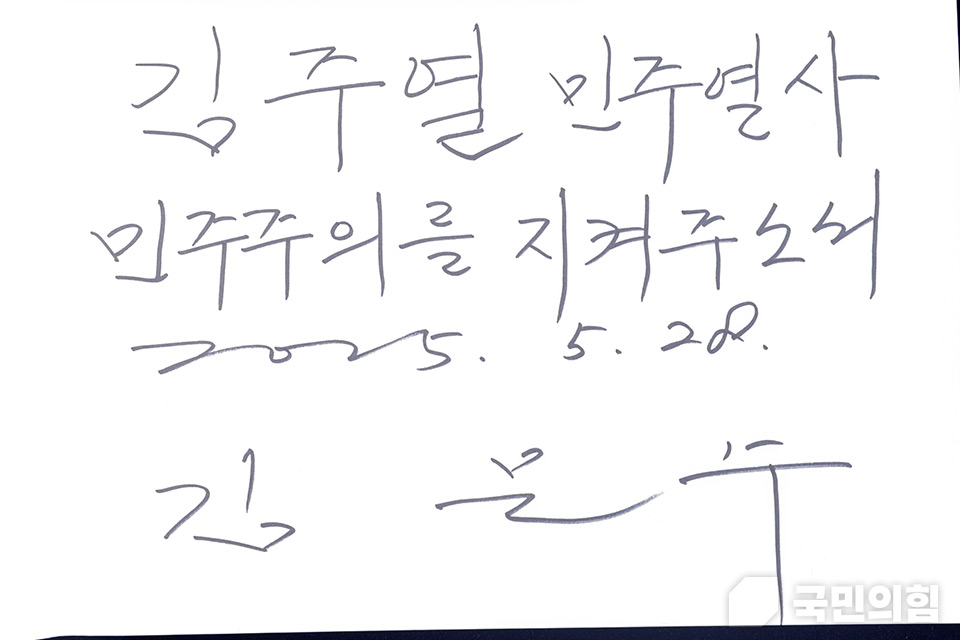 김주열 민주열사
민주주의를 지켜주소서
2025. 5. 28.
김 문 수
국민의힘